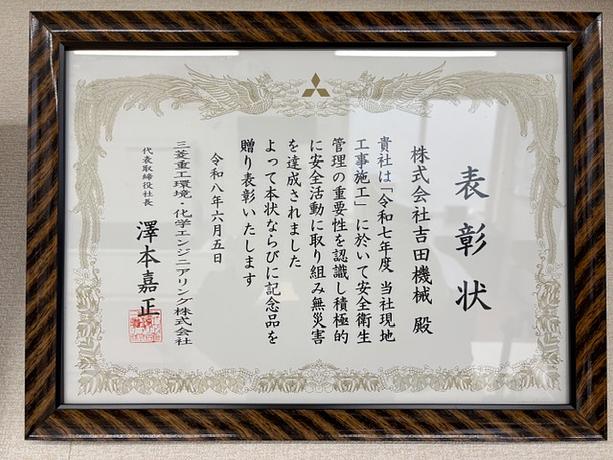 表彰状
株式会社吉田機械 殿
貴社は「令和七年度 当社現地
工事施工」に於いて安全衛生
管理の重要性を認識し積極的
に安全活動に取り組み無災害
を達成されました
よって本状ならびに記念品を
贈り表彰いたします
令和八年六月五日
三菱重工環境・化学エンジニアリング株式会社
代表取締役社長 澤本嘉正